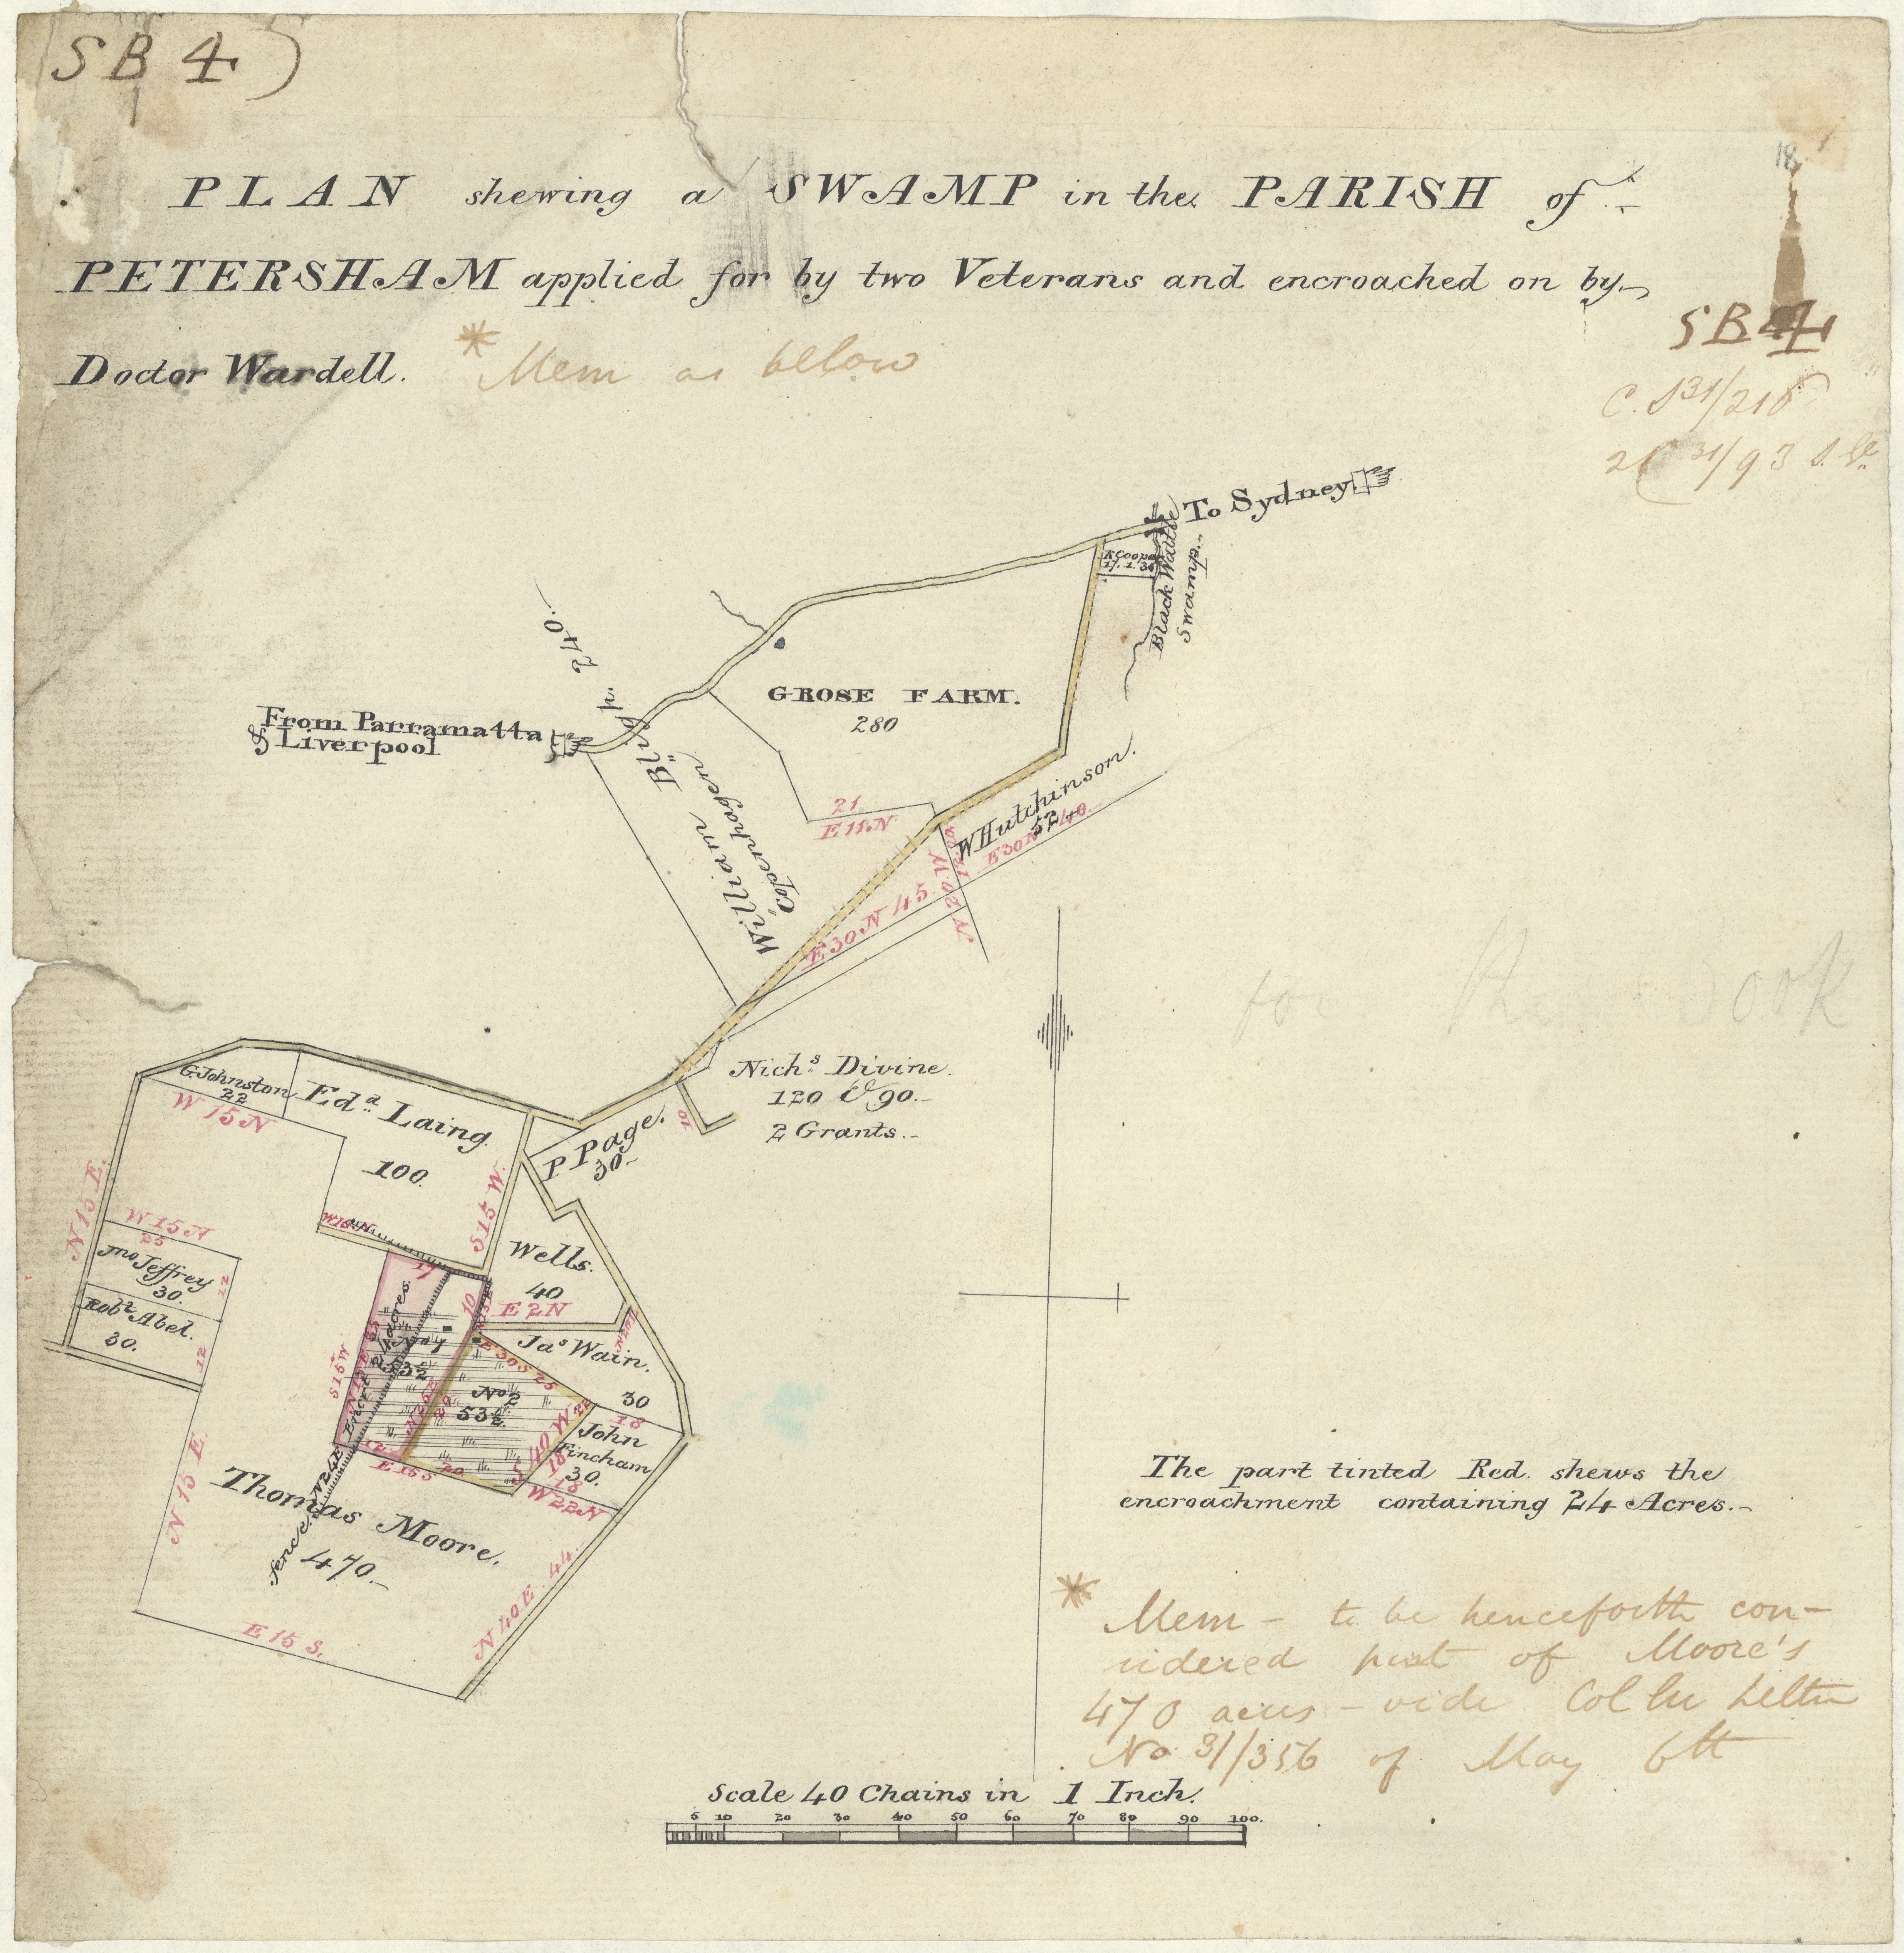 SB 4)
PLAN shewing a SWAMP in the PARISH of
PETERSHAM applied for by two Veterans and encroached on by
Doctor Wardell.
* Mem as below
18
SB 4
C. S 31/216
31/93
To Sydney
R Cooper
17. 1. 3
Black Wattle
Swamp
GROSE FARM.
280
From Parramatta
& Liverpool
William Bligh. 240.
"Copenhagen"
21
E 11 N
W Hutchinson.
52
E 30 N 40.
N 20 W
E 30 N 45
for the Book
Nichs. Divine.
120 & 90.-
2 Grants.-
10
P Page.
30-
G. Johnston
22
W 15 N
Eda. Laing.
100.
N 15 E.
S 15 W.
W 15 N
W 15 N
25
Jno Jeffrey
30.
12
Robt. Abel.
30.
12
Wells.
40
E 2 N
Jas Wain.
30
18
17
10
No 1
53½
Encrt 24 acres
S 15 W
N 15 E
N 25 E
29
E 30 S 25
No 2
53½
S 40 W 22
John
Fincham
30.
18
18
W 22 N
12
E 15 S
20
N 24 E
fence
N 15 E.
Thomas Moore.
470.-
N 40 E. 44.
E 15 S.
The part tinted Red. shews the
encroachment containing 24 Acres.-
* Mem - to be henceforth con-
sidered part of Moore's
470 acres - vide Col Sec letter
No 31/356 of May 6th
Scale 40 Chains in 1 Inch.
5 10 20 30 40 50 60 70 80 90 100.